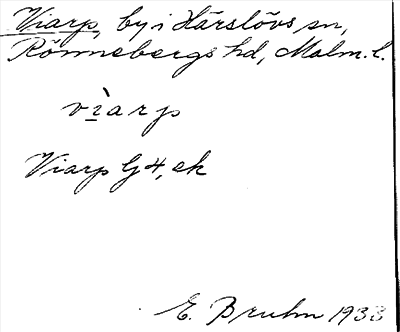 Viarp, by i Härslövs sn,
Rönnebergs hd, Malm. l.
vìarp
Viarp G 4, ek
E. Bruhn 1933